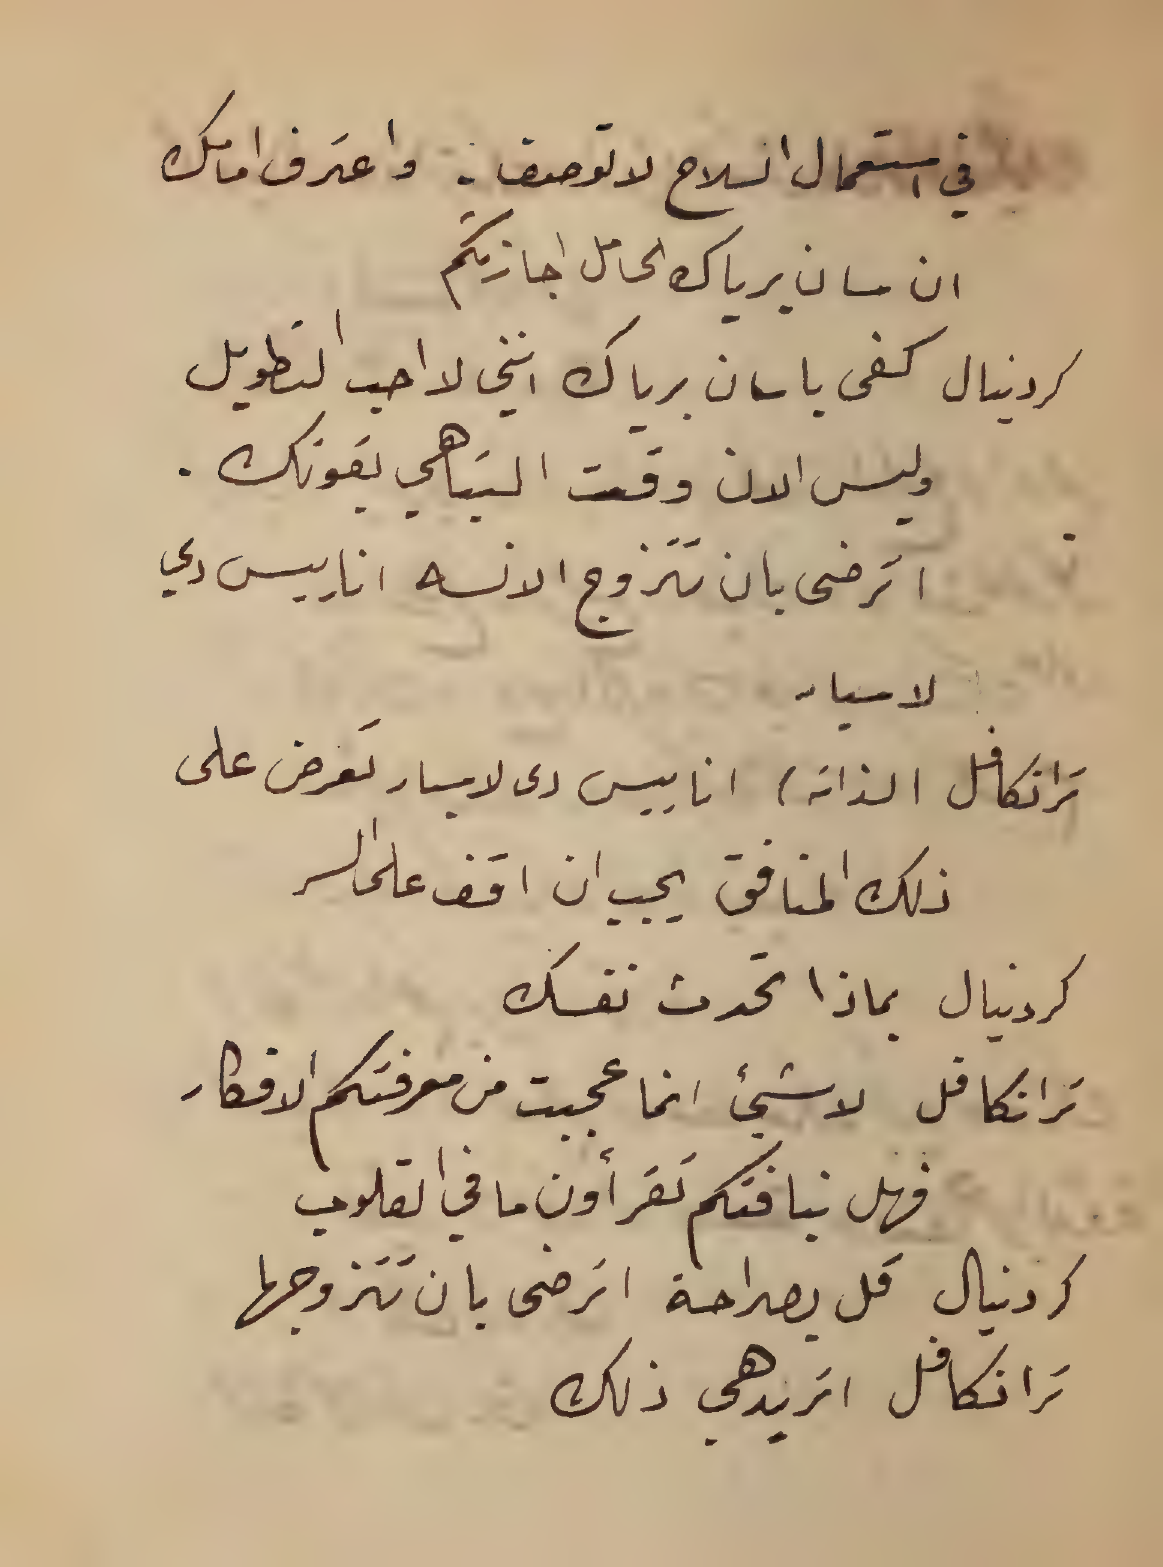 في استعمال السلاح لا توصف : واعترف امامك
ان سان برياك الحامل اجازتكم
كردينال كفى يا سان برياك انني لا احب التطويل
وليس الان وقت التباهي بقوتك .
اترضى بان تتزوج الانسه اناييس دي
لاسيار
ترانكافل الذاته ) اناييس دى لاسيار تعرض على
ذلك المنافق يجب ان اقف على السر
كردينال بماذا تحدث نفسك
ترانكافل لا شيئ انما عجبت من معرفتكم الافكار
فهل نيافتكم تقرأون ما في القلوب
كردينال قل بصراحة اترضى بان تتزوجها
ترانكافل اتريد هي ذلك